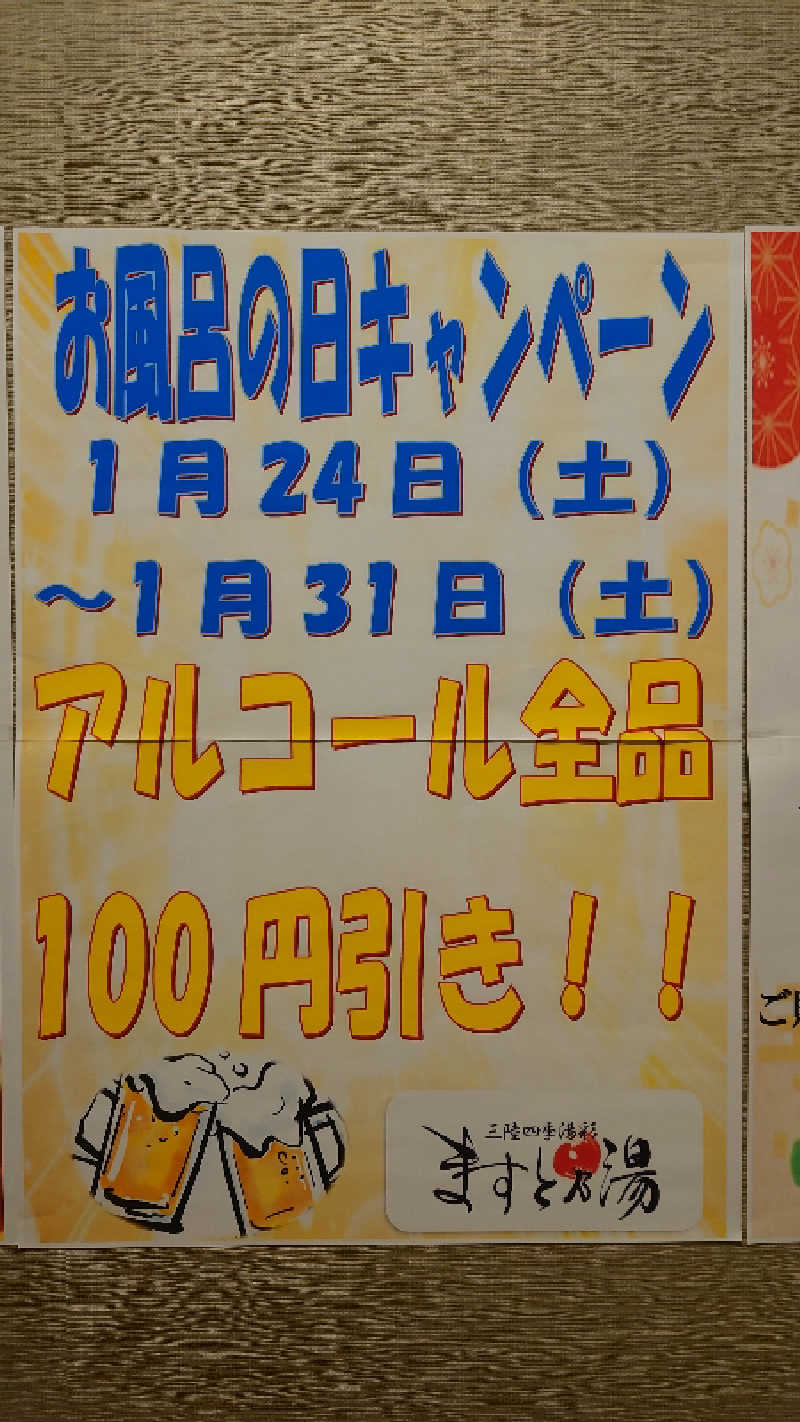 お風呂の日キャンペーン
1月24日（土）
～1月31日（土）
アルコール全品
100円引き！！
三陸四季湯彩
ますと乃湯
ご